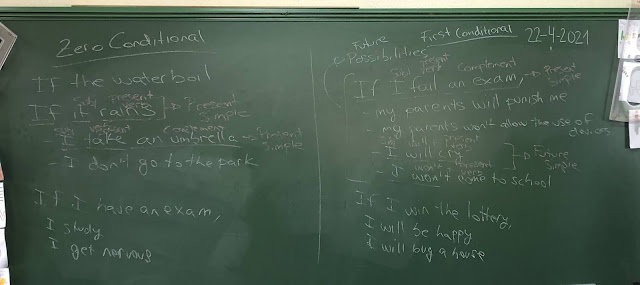 Zero Conditional
If the water boil
Subj Present verb
If it rains, → Present Simple
Subj Present complement
- I take an umbrella → Present Simple
- I don't go to the park
If I have an exam,
I study
I get nervous
Future
Possibilities
First Conditional 22-4-2021
Subj Present verb complement
If I fail an exam, → Present Simple
my parents will punish me
my parents won't allow the use of devices
- I will cry
won't + Present verb
- I won't come to school
→ Future Simple
If I win the lottery,
I will be happy
I will bug a house